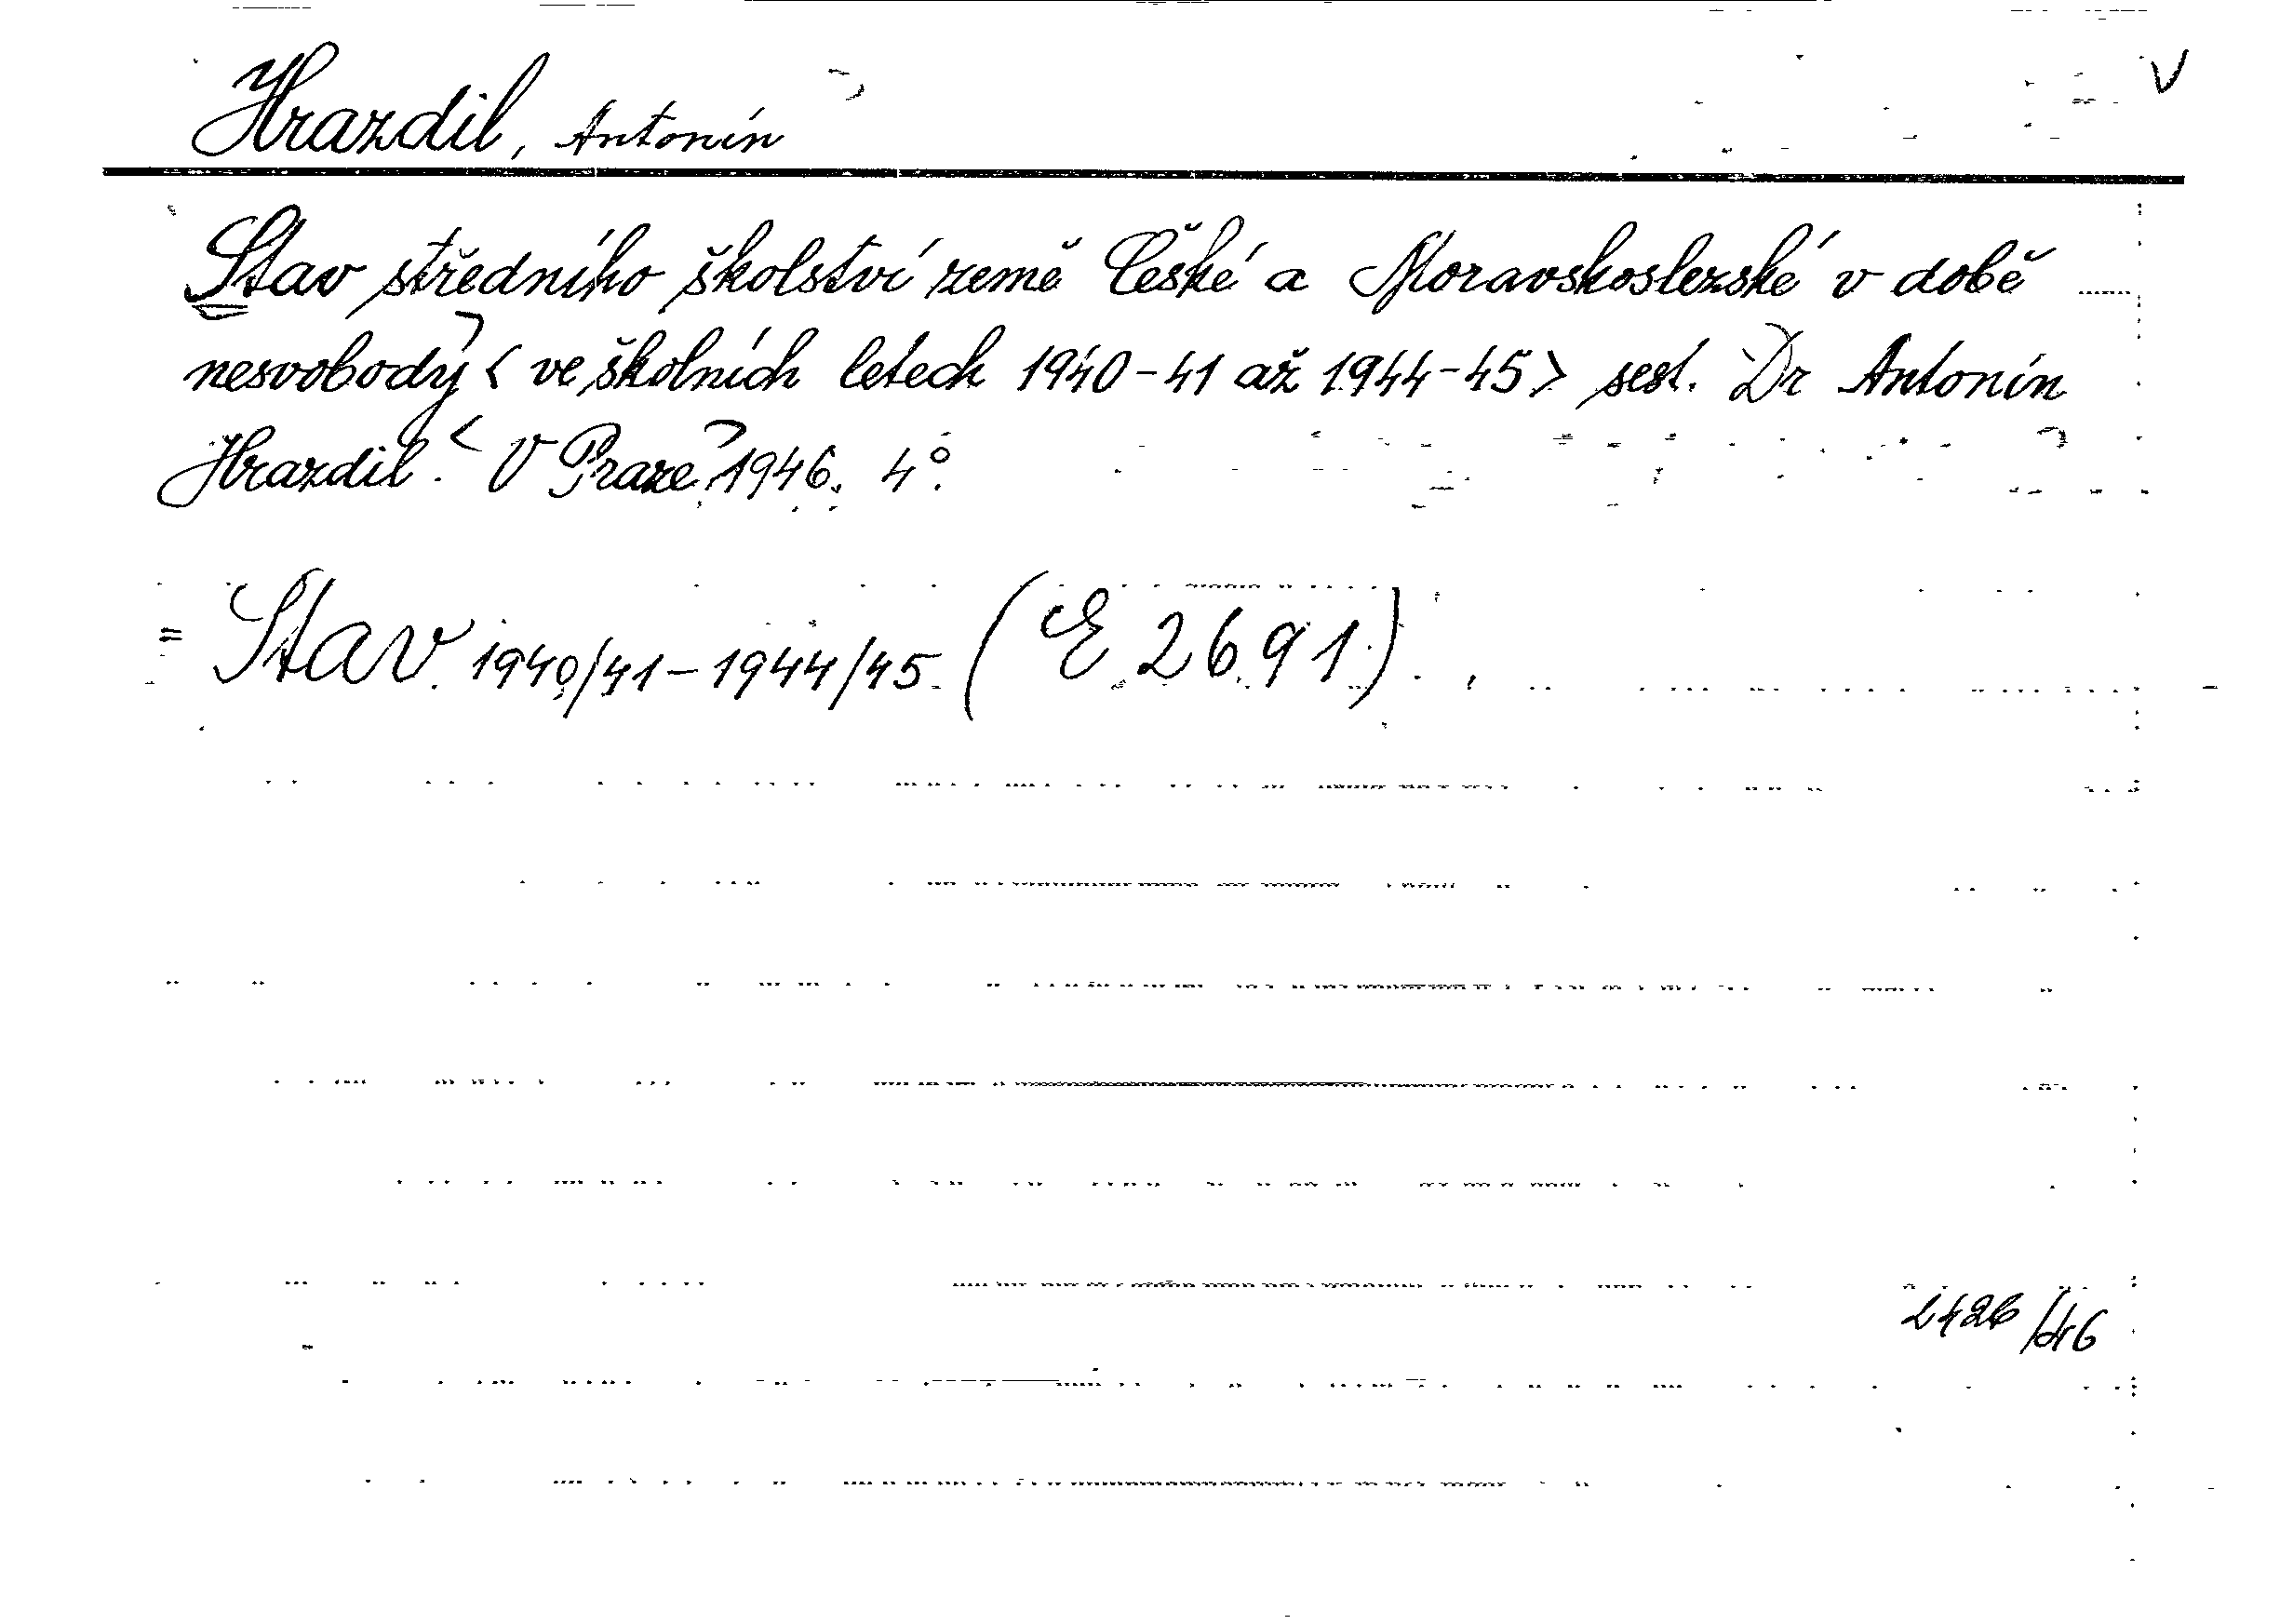 Hrazdil, Antonín
Stav středního školství země České a Moravskoslezské v době
nesvobody < ve školních letech 1940-41 až 1944-45> sest. Dr Antonín
Hrazdil. V Praze 1946. 4°.
= Stav 1940/41-1944/45. (E 2691)
2426/46